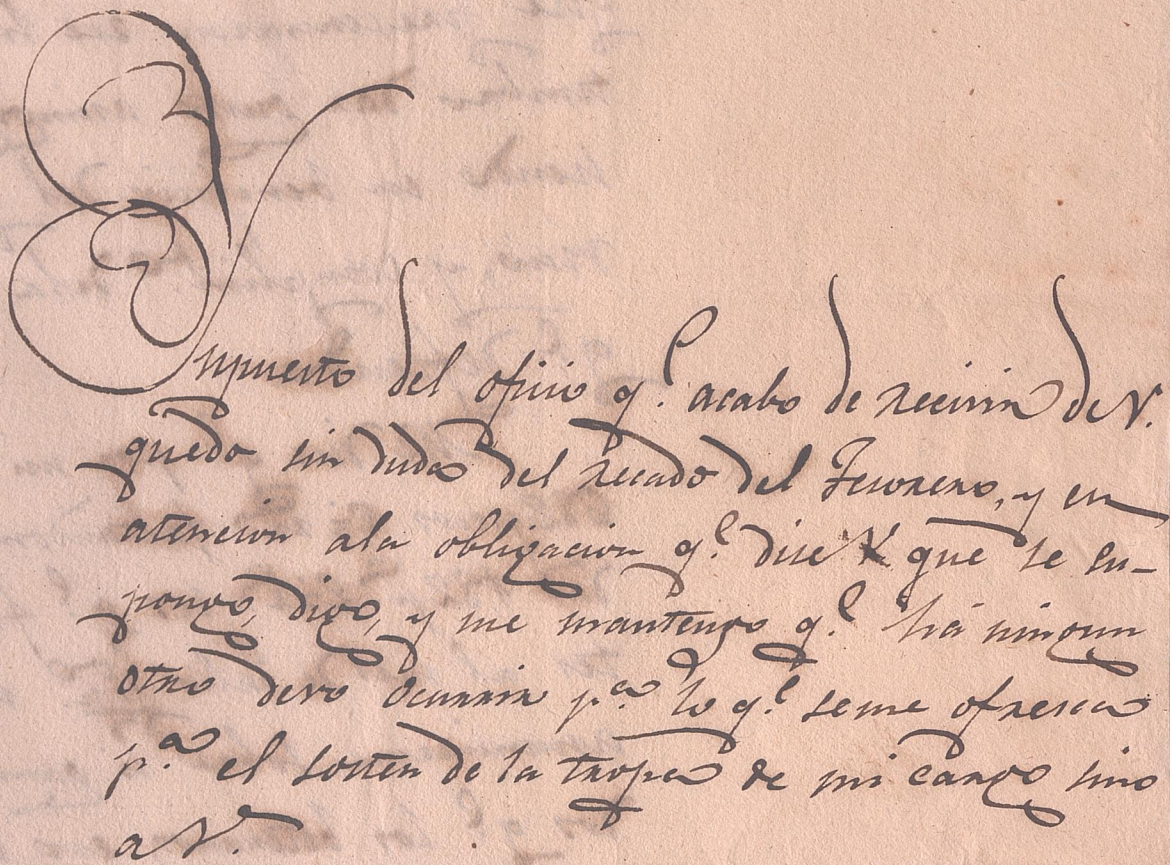 Supuesto del oficio q.e acabo de recivir de V.
quedo sin duda del recado del Tesorero, y en
atencion ala obligacion q.e dise V que le su-
pongo, digo, y me mantengo q.e há ningun
otro devo ocurrir p.a lo q.e seme ofresca
p.a el sosten de la tropa de mi cargo sino
a V.